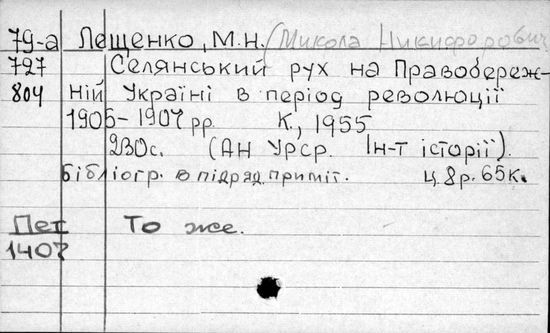 79-а Лещенко, М.Н. (Микола Никифорович
727 Селянський рух на Правобереж-
804 ній Україні в період революції
1905-1907 рр. К., 1955
230с. (АН УРСР. Ін-т історії).
Бібліогр. в підряд. приміт. ц. 8р. 65к.
Пет То же.
1407